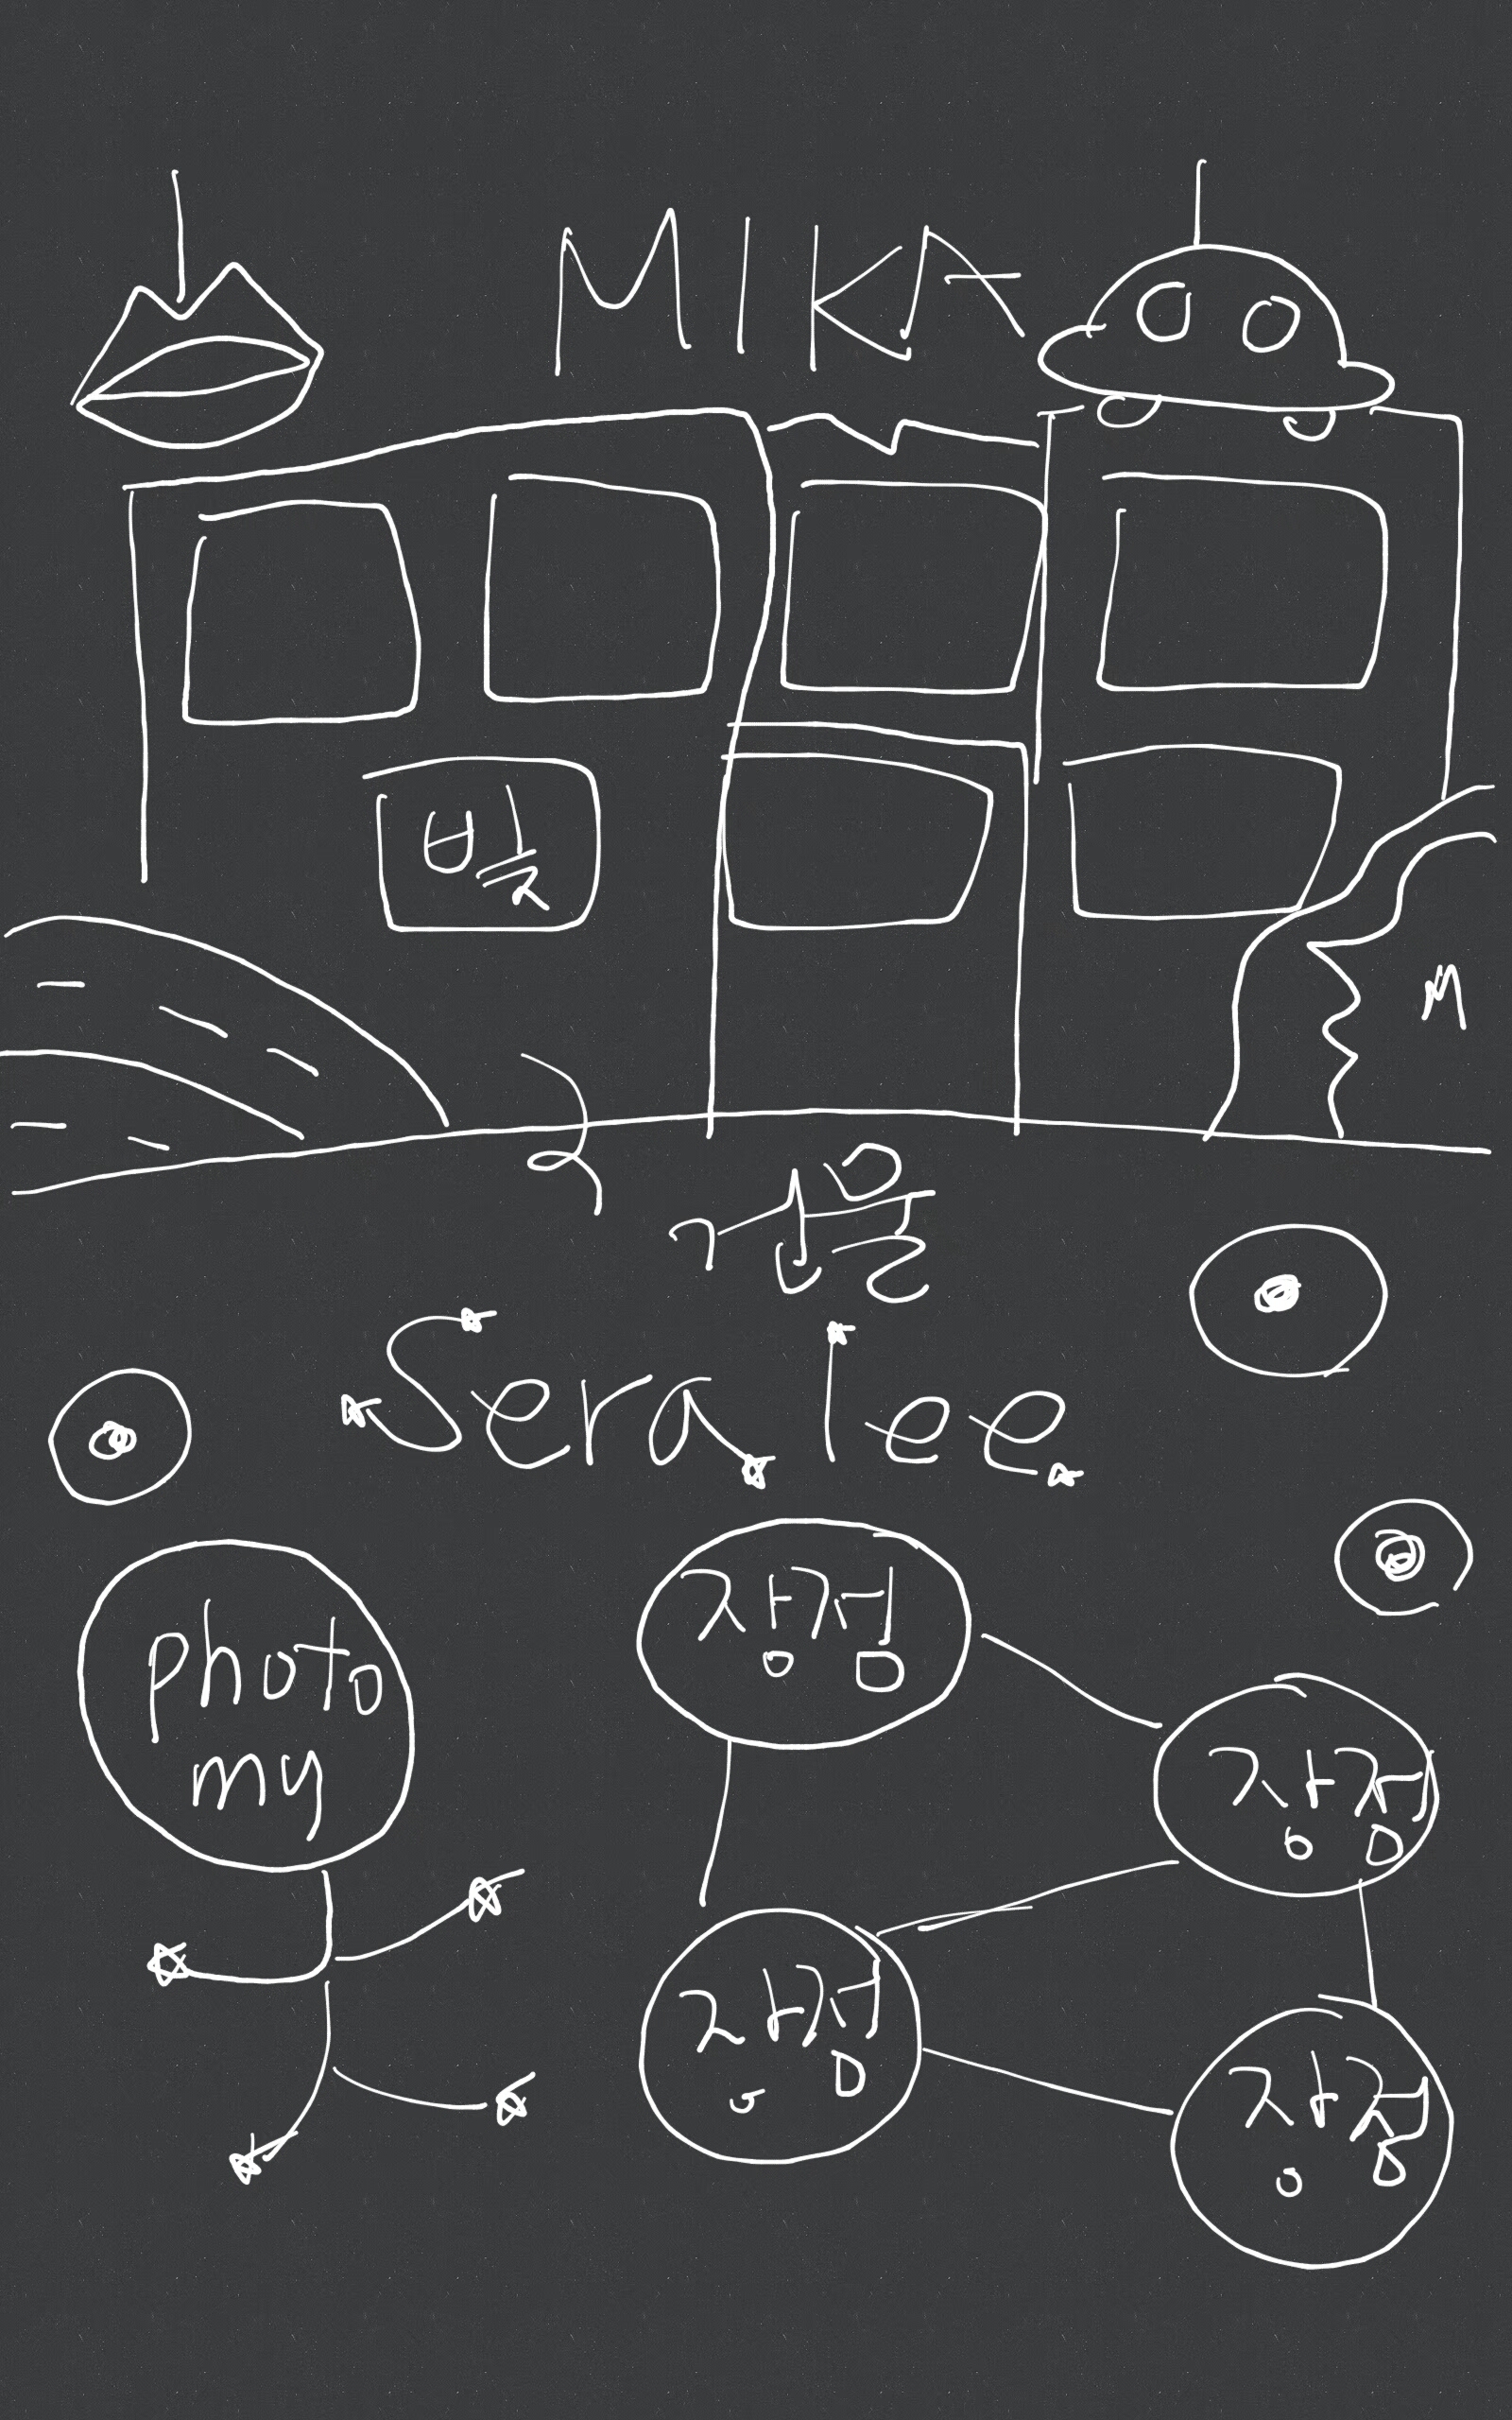 MIKA
빛
M
Sera lee
photo
my
장점
장점
장점
장점